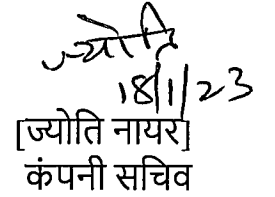 ज्योति
18/1/23
[ज्योति नायर]
कंपनी सचिव